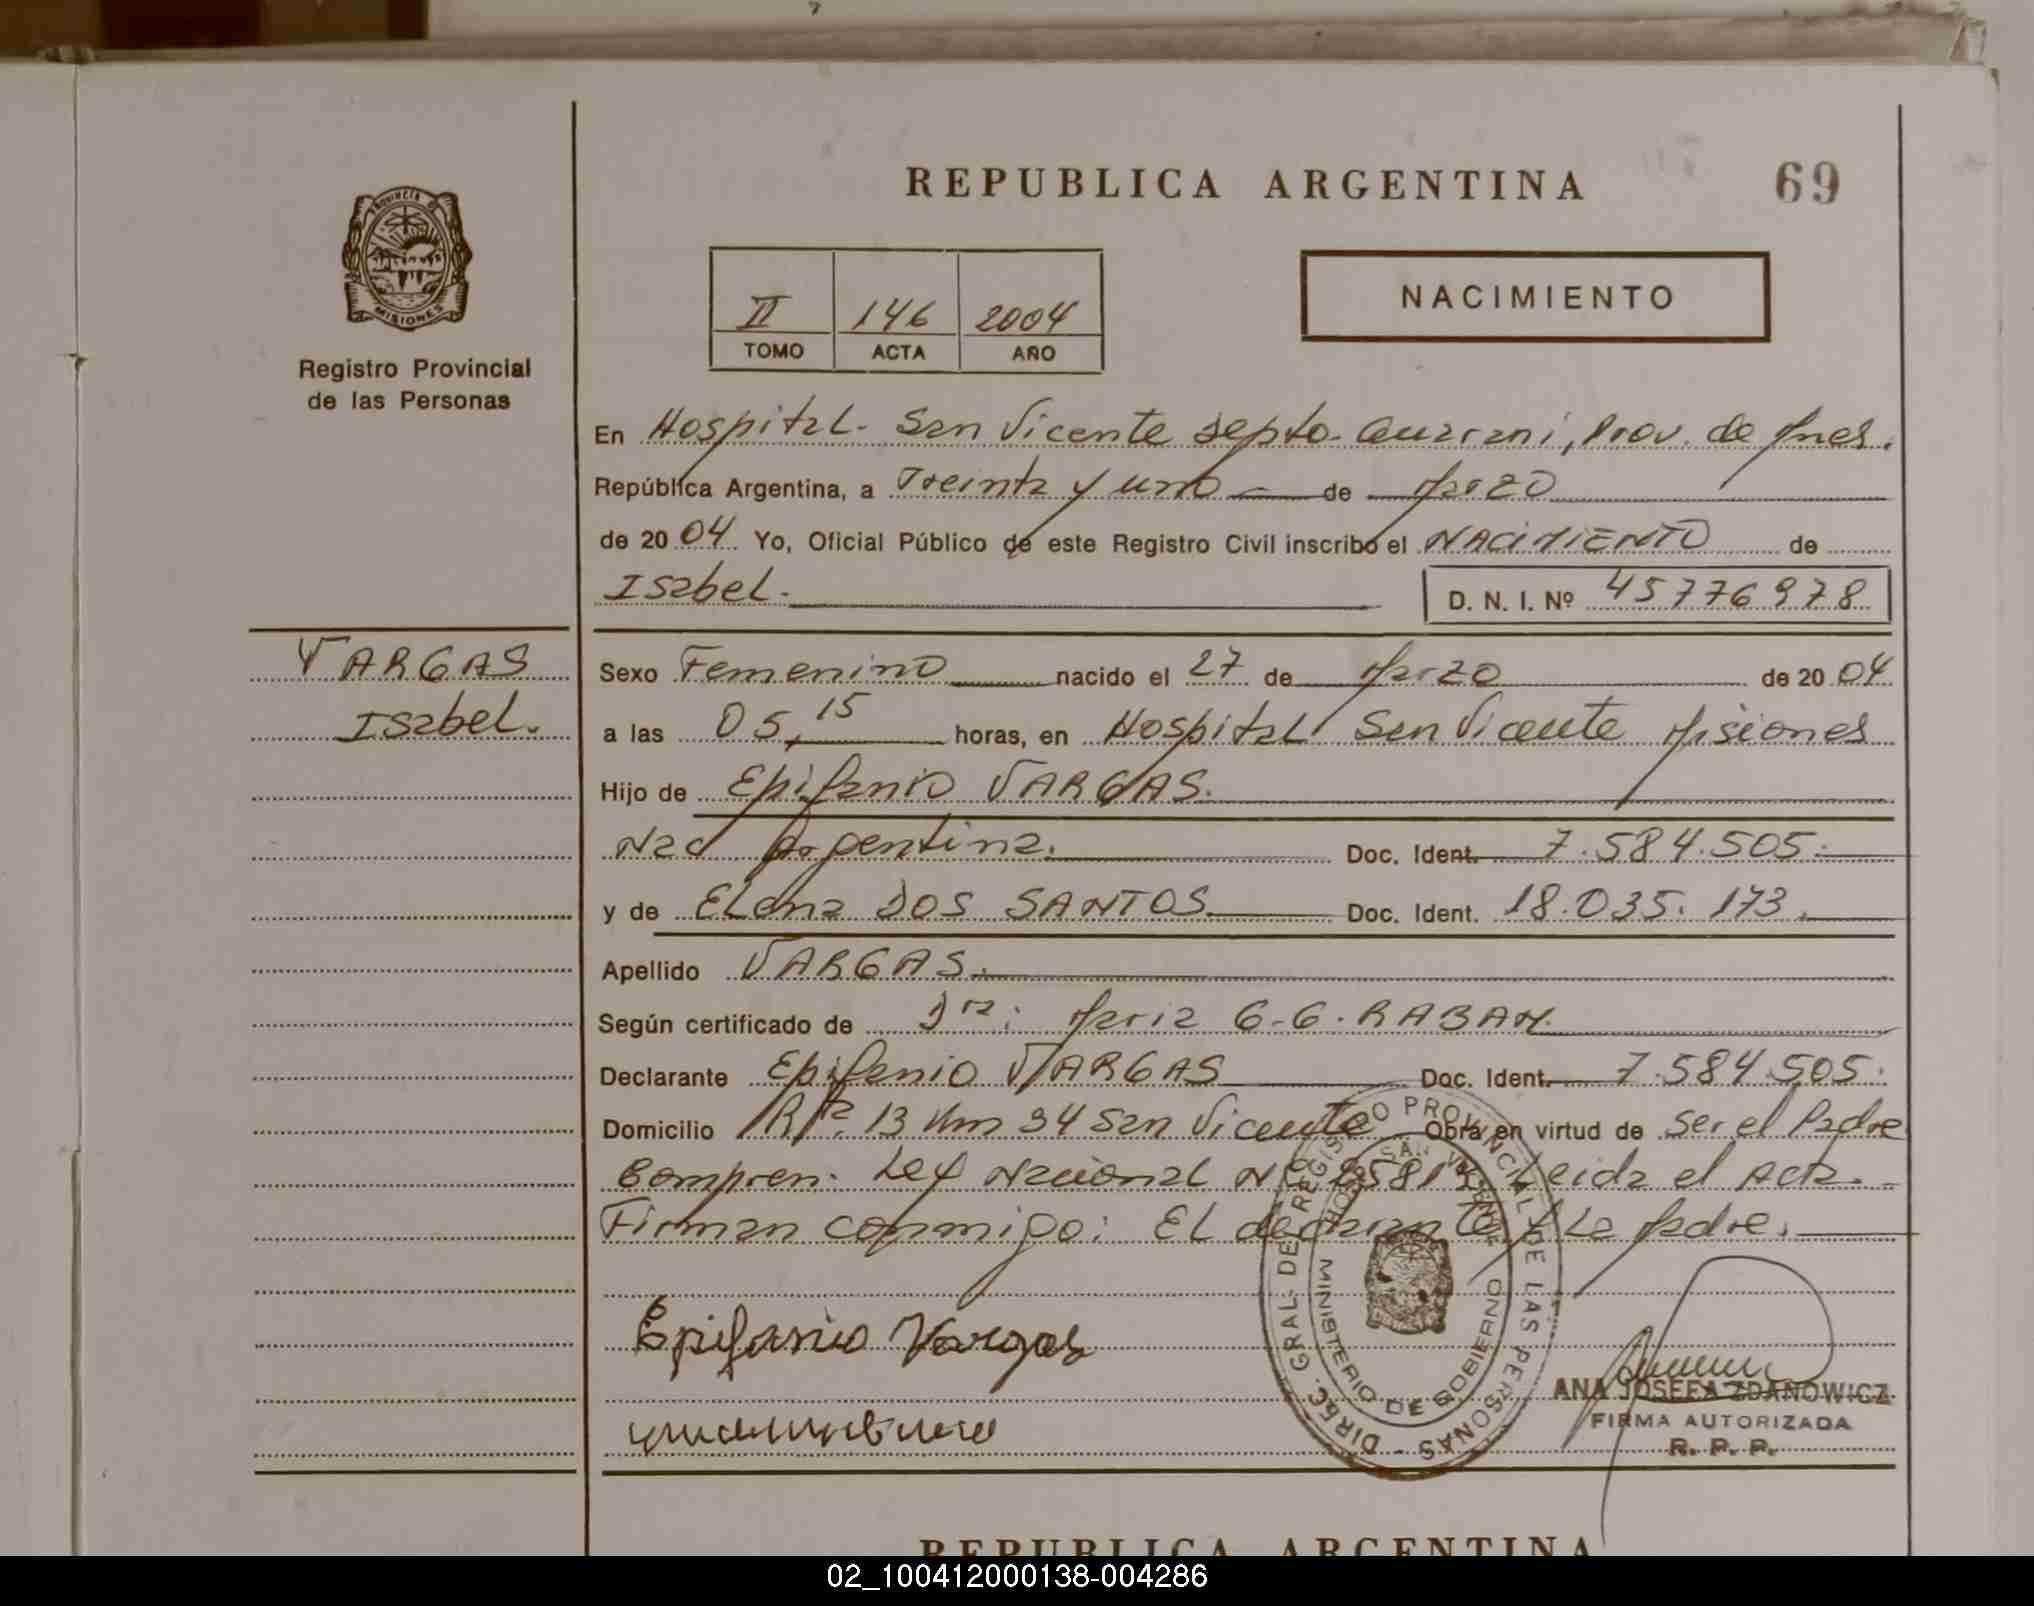 REPUBLICA ARGENTINA
69
PROVINCIA D
MISIONES
Registro Provincial
de las Personas
II 146 2004
TOMO ACTA AÑO
NACIMIENTO
En Hospital. San Vicente Depto. Guarani, Prov. de Mnes.
República Argentina, a Treinta y uno de Marzo
de 2004 Yo, Oficial Público de este Registro Civil inscribo el NACIMIENTO de
Isabel.
D. N. I. Nº 45776978
VARGAS
Isabel.
Sexo Femenino nacido el 27 de Marzo de 2004
a las 05,15 horas, en Hospital San Vicente Misiones
Hijo de Epifanio VARGAS.
Nac Argentina. Doc. Ident. 7.584.505.
y de Elena DOS SANTOS Doc. Ident. 18.035.173.
Apellido VARGAS.
Según certificado de Dra: Maria G.G. RABAN.
Declarante Epifanio VARGAS Doc. Ident. 7.584.505.
Domicilio R.P. 13 Km 34 San Vicente Obra en virtud de Ser el Padre
Compren. Ley Nacional Leida el Acta.
Firman conmigo: El declarante y La Madre.
Epifanio Vargas
DIREC. GRAL. DE REGISTRO PROVINCIAL DE LAS PERSONAS
SAN VICENTE
MINISTERIO DE GOBIERNO
ANA JOSEFA ZDANOWICZ
FIRMA AUTORIZADA
R. P. P.
REPUBLICA ARGENTINA
02_100412000138-004286